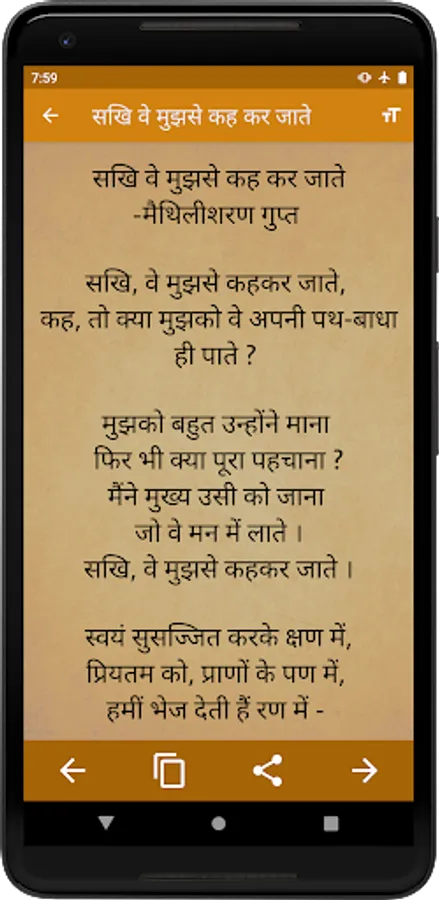 7:59
सखि वे मुझसे कह कर जाते
सखि वे मुझसे कह कर जाते
-मैथिलीशरण गुप्त
सखि, वे मुझसे कहकर जाते,
कह, तो क्या मुझको वे अपनी पथ-बाधा
ही पाते ?
मुझको बहुत उन्होंने माना
फिर भी क्या पूरा पहचाना ?
मैंने मुख्य उसी को जाना
जो वे मन में लाते ।
सखि, वे मुझसे कहकर जाते ।
स्वयं सुसज्जित करके क्षण में,
प्रियतम को, प्राणों के पण में,
हमीं भेज देती हैं रण में -